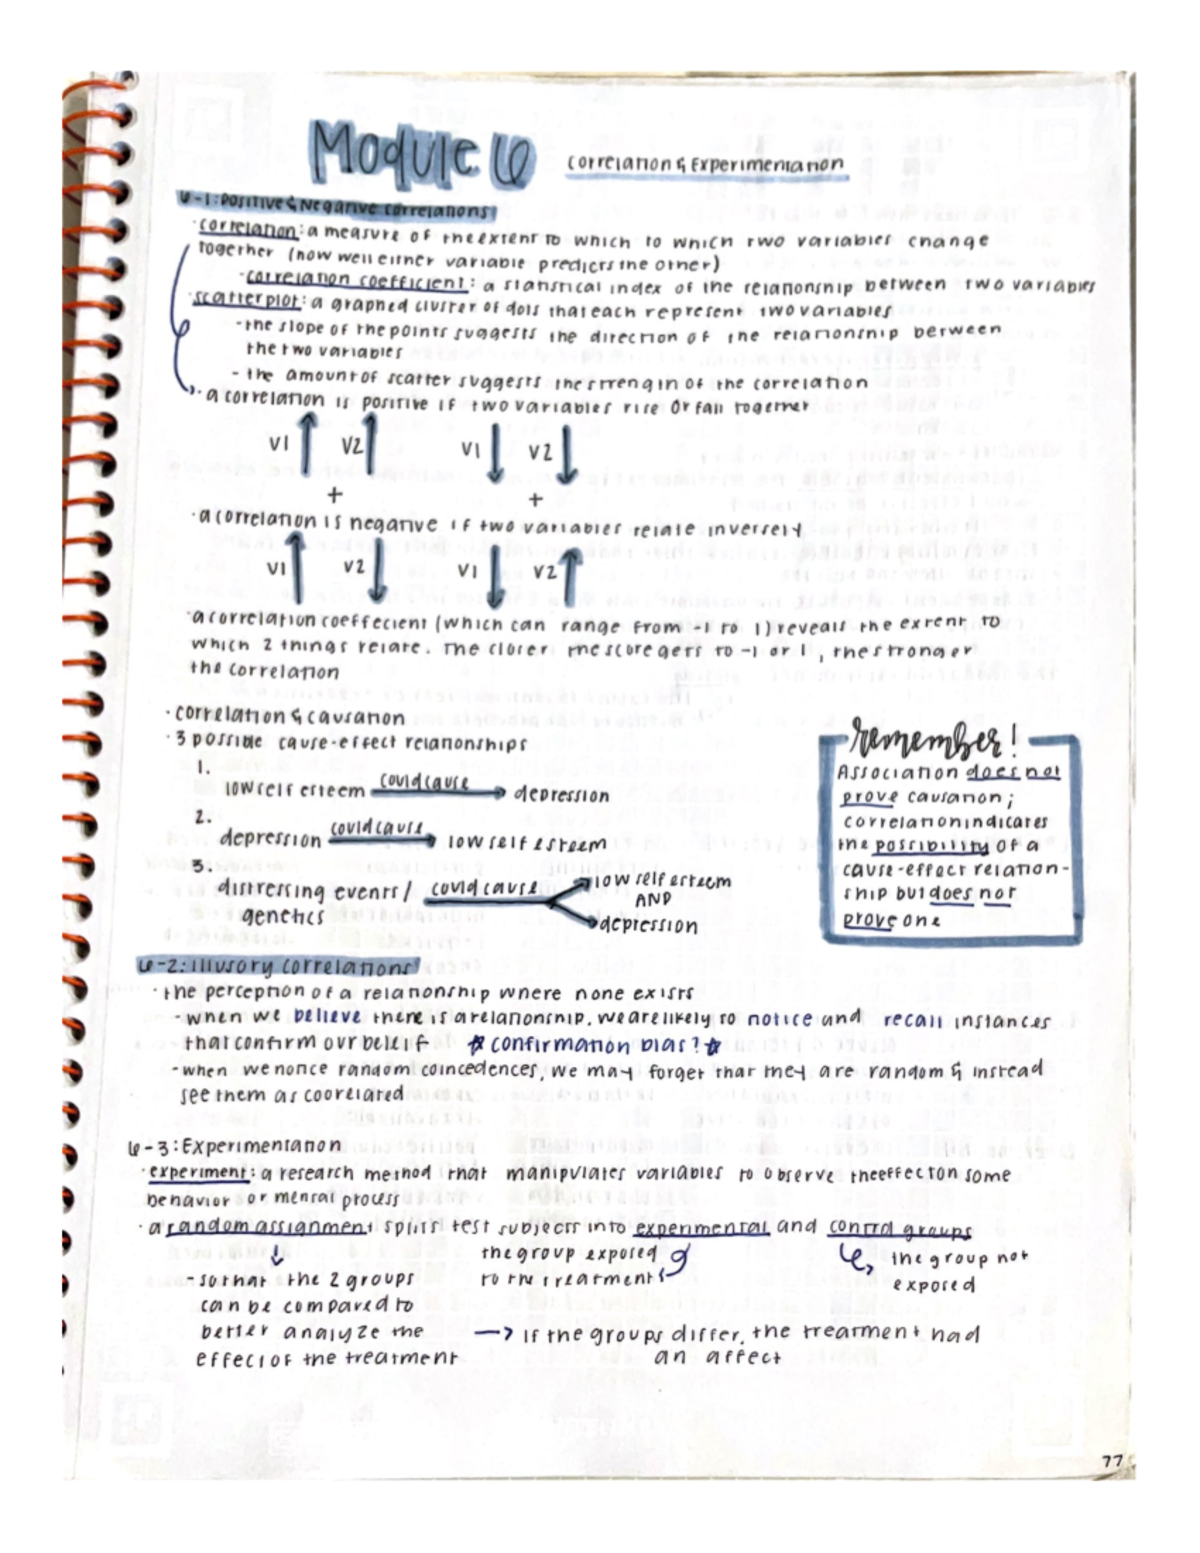 Module 6 Correlation & Experimentation
6-1: Positive & Negative Correlations
· correlation: a measure of the extent to which to which two variables change
together (how well either variable predicts the other)
- correlation coefficient: a statistical index of the relationship between two variables
· scatterplot: a graphed cluster of dots that each represent two variables
- the slope of the points suggests the direction of the relationship between
the two variables
- the amount of scatter suggests the strength of the correlation
· a correlation is positive if two variables rise or fall together
V1 V2 V1 V2
+ +
· a correlation is negative if two variables relate inversely
V1 V2 V1 V2
· a correlation coeffecient (which can range from -1 to 1) reveals the extent to
which 2 things relate. The closer the score gets to -1 or 1, the stronger
the correlation
· correlation & causation
· 3 possible cause-effect relationships
1.
low self esteem could cause depression
2.
depression could cause low self esteem
3.
distressing events/ could cause low self esteem
genetics AND
depression
remember!
Association does not
prove causation;
correlation indicates
the possibility of a
cause-effect relation-
ship but does not
prove one
6-2: Illusory Correlations
· the perception of a relationship where none exists
- when we believe there is a relationship, we are likely to notice and recall instances
that confirm our beleif ☆ confirmation bias? ☆
- when we notice random coincedences, we may forget that they are random & instead
see them as coorelated
6-3: Experimentation
· experiment: a research method that manipulates variables to observe the effect on some
behavior or mental process
· a random assignment splits test subjects into experimental and control groups
↓ the group exposed the group not
- so that the 2 groups to the treatment exposed
can be compared to
better analyze the → if the groups differ, the treatment had
effect of the treatment an affect
77